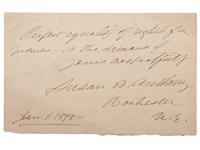 Perfect equality of rights for
women - is the demand of
yours respectfully
Susan B. Anthony
Rochester
Jan. 1. 1898 N.Y.